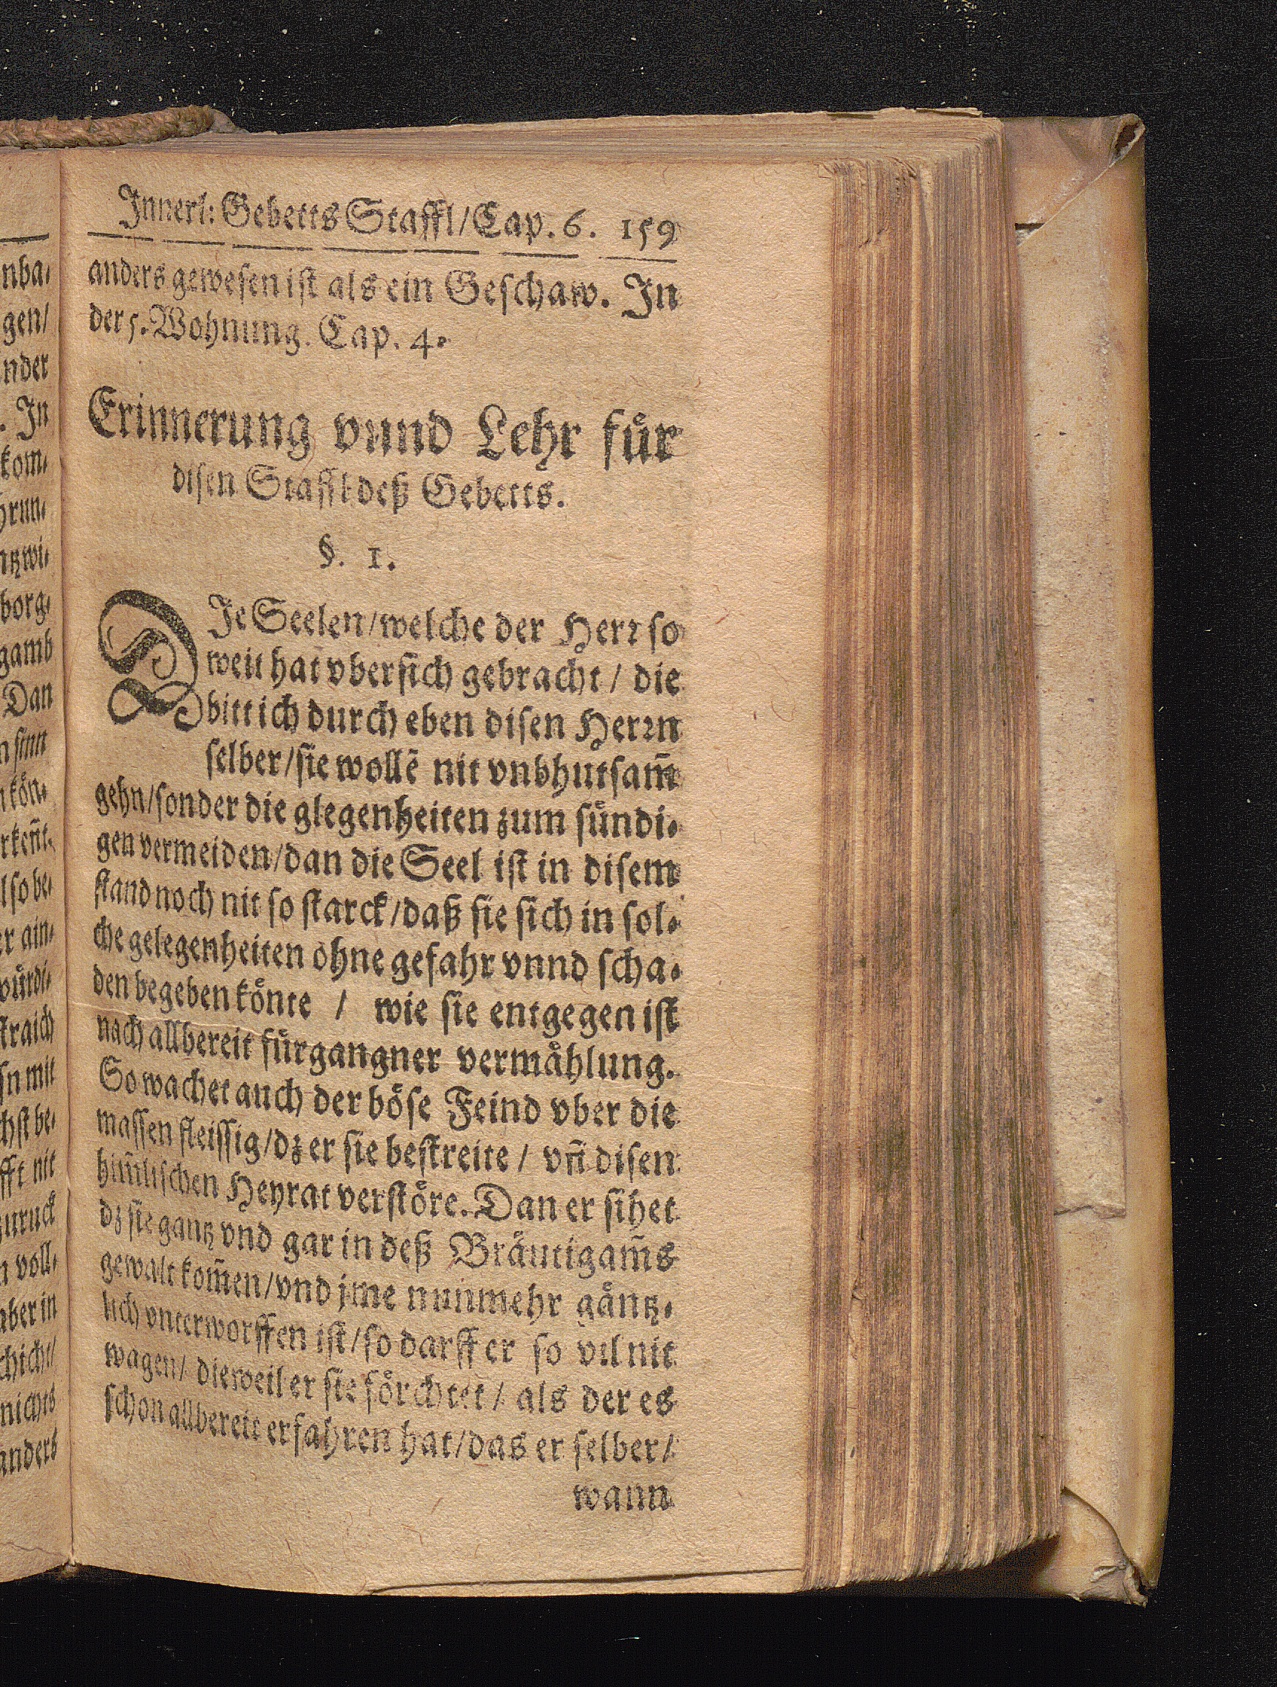 Innerl: Gebetts Staffl/Cap. 6. 159
anders gewesen ist als ein Geschaw. In
der 5. Wohnung. Cap. 4.
Erinnerung vnnd Lehr für
disen Staffl deß Gebetts.
§. 1.
DIe Seelen/welche der Herr so
weit hat vbersich gebracht / die
bitt ich durch eben disen Herrn
selber/sie wollẽ nit vnbhutsam̃
gehn/sonder die glegenheiten zum sündi-
gen vermeiden/dan die Seel ist in disem
stand noch nit so starck/daß sie sich in sol-
che gelegenheiten ohne gefahr vnnd scha-
den begeben könte / wie sie entgegen ist
nach allbereit fürgangner vermählung.
So wachet auch der böse Feind vber die
massen fleissig/dz er sie bestreite / vñ disen
him̃lischen Heyrat verstöre. Dan er sihet
dz sie gantz vnd gar in deß Bräutigam̃s
gewalt kom̃en/vnd jme nunmehr gäntz-
lich vnterworffen ist/so darff er so vil nit
wagen/ dieweil er sie förchtet / als der es
schon allbereit erfahren hat/das er selber/
wann
nba-
gen/
nder
. In
kom-
hrun-
ntzwi-
borg-
gamb
Dan
n sinn
kön-
rkeñt-
l so be-
er ain-
würdi-
straich
sn mit
chst be-
fft nit
zuruck
n voll-
aber in
chicht/
nichts
anders